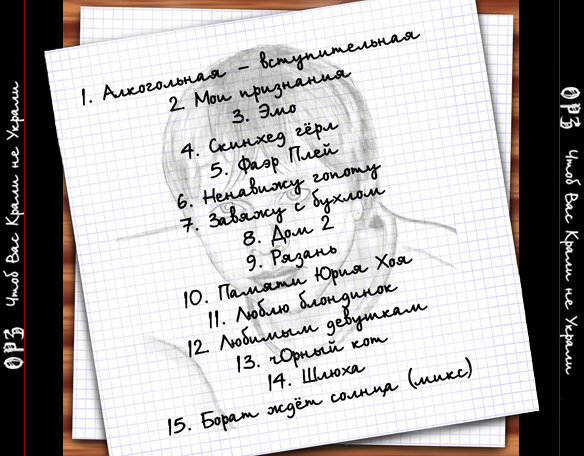 ОРЗ Чтоб Вас Крали не Украли
1. Алкогольная – вступительная
2. Мои признания
3. Эмо
4. Скинхед гёрл
5. Фаэр Плей
6. Ненавижу гопоту
7. Завяжу с бухлом
8. Дом 2
9. Рязань
10. Памяти Юрия Хоя
11. Люблю блондинок
12. Любимым девушкам
13. чОрный кот
14. Шлюха
15. Борат ждёт солнца (микс)
ОРЗ Чтоб Вас Крали не Украли